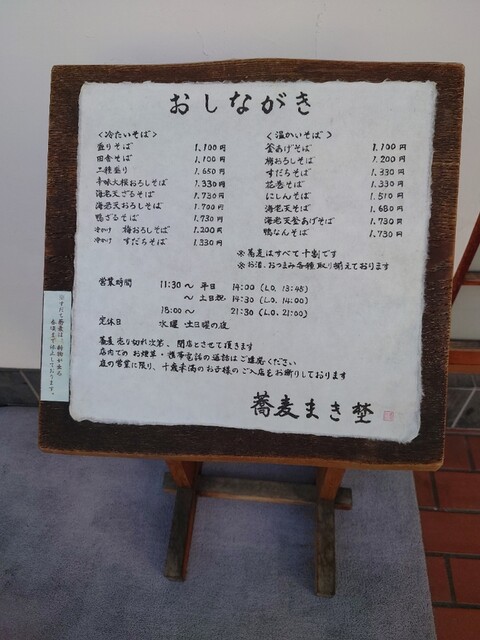 おしながき
<冷たいそば>
盛りそば 1,100円
田舎そば 1,100円
二種盛り 1,650円
辛味大根おろしそば 1,330円
海老天ざるそば 1,730円
海老天おろしそば 1,700円
鴨ざるそば 1,730円
冷かけ 梅おろしそば 1,200円
冷かけ すだちそば 1,330円
<温かいそば>
釜あげそば 1,100円
梅おろしそば 1,200円
すだちそば 1,330円
花巻そば 1,330円
にしんそば 1,510円
海老天そば 1,680円
海老天釜あげそば 1,730円
鴨なんそば 1,730円
※蕎麦はすべて十割です
※お酒、おつまみ各種取り揃えております
営業時間 11:30～ 平日 14:00 (L.O. 13:45)
～土日祝 14:30 (L.O. 14:00)
18:00～ 21:30 (L.O. 21:00)
定休日 水曜・土日曜の夜
蕎麦売り切れ次第、閉店とさせて頂きます
店内でのお煙草・携帯電話の通話はご遠慮ください
夜の営業に限り、十歳未満のお子様のご入店をお断りしております
蕎麦まき埜
※すだち蕎麦は、新物が出る
春頃まで休止しております。